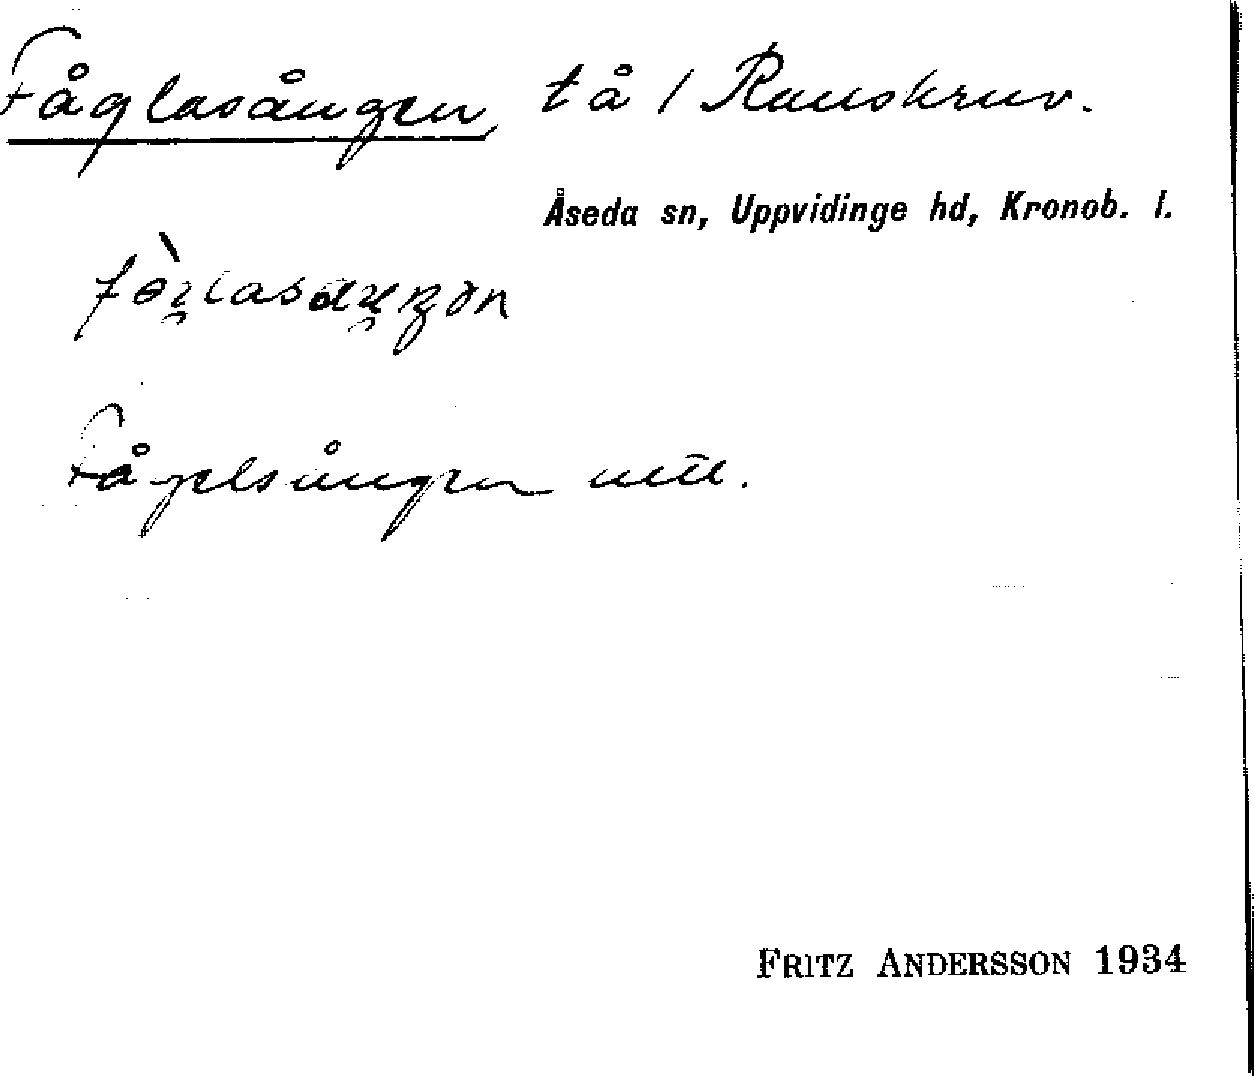 Fåglasången tå / Ranskruv.
Åseda sn, Uppvidinge hd, Kronob. l.
Fågelsången
FRITZ ANDERSSON 1934